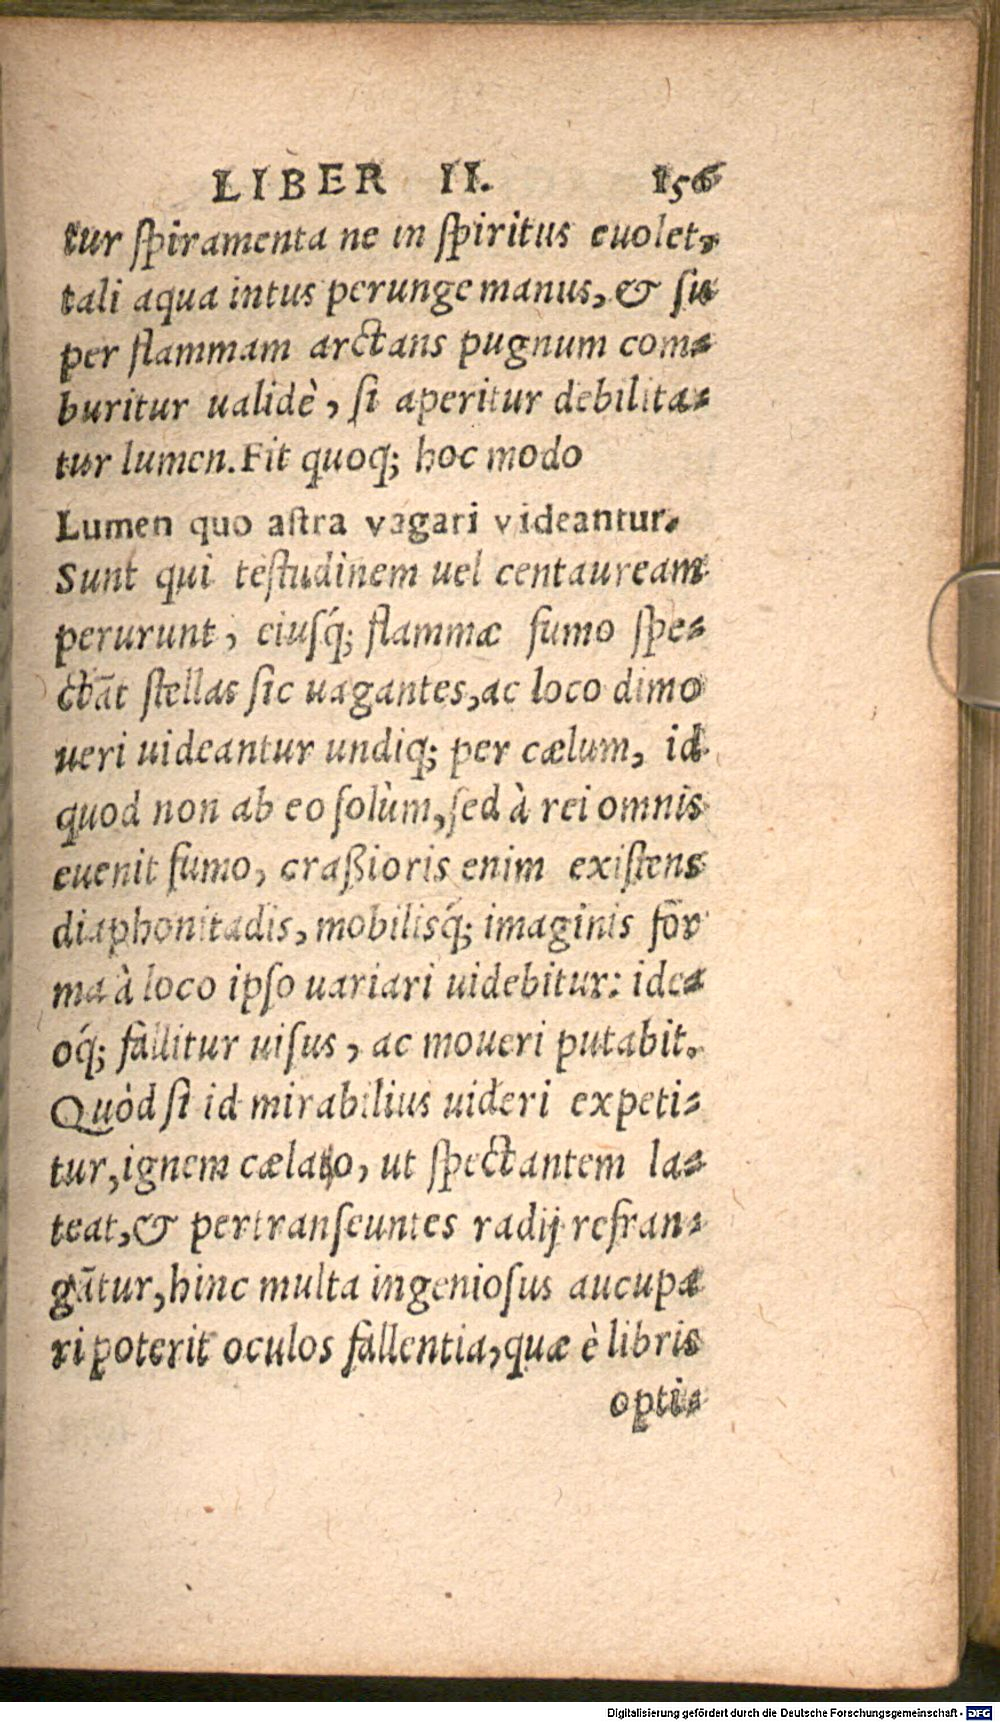 LIBER II. 156
tur ſpiramenta ne in ſpiritus euolet,
tali aqua intus perunge manus, & ſu
per flammam arctans pugnum com-
buritur ualidè, ſi aperitur debilita-
tur lumen. Fit quoq; hoc modo
Lumen quo aſtra vagari videantur.
Sunt qui teſtudinem uel centauream
perurunt, eiuſq́; flammæ fumo ſpe-
ctāt ſtellas ſic uagantes, ac loco dimo
ueri uideantur undiq; per cælum, id
quod non ab eo ſolùm, ſed à rei omnis
euenit fumo, craßioris enim exiſtens
diaphonitadis, mobilisq́; imaginis for
ma à loco ipſo uariari uidebitur: ide-
oq́; fallitur uiſus, ac moueri putabit.
Quòd ſi id mirabilius uideri expeti-
tur, ignem cælato, ut ſpectantem la-
teat, & pertranſeuntes radij refran-
gātur, hinc multa ingenioſus aucupa
ri poterit oculos fallentia, quæ è libris
opti-
Digitalisierung gefördert durch die Deutsche Forschungsgemeinschaft - DFG